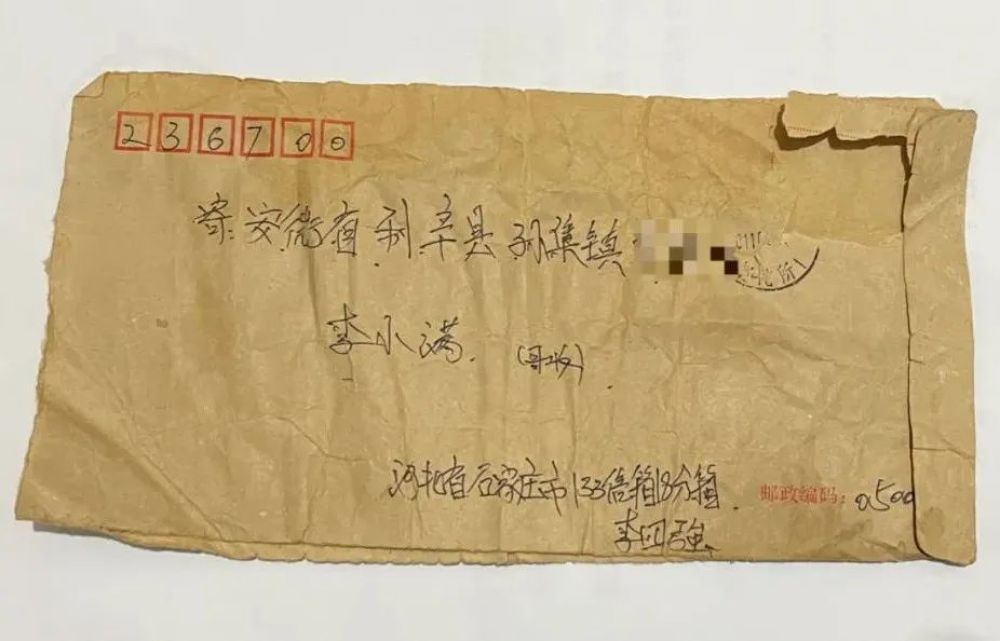 236700
寄安徽省利辛县孙集镇
李小满 (哥收)
河北省石家庄市133信箱18分箱
邮政编码: 0500
李四强